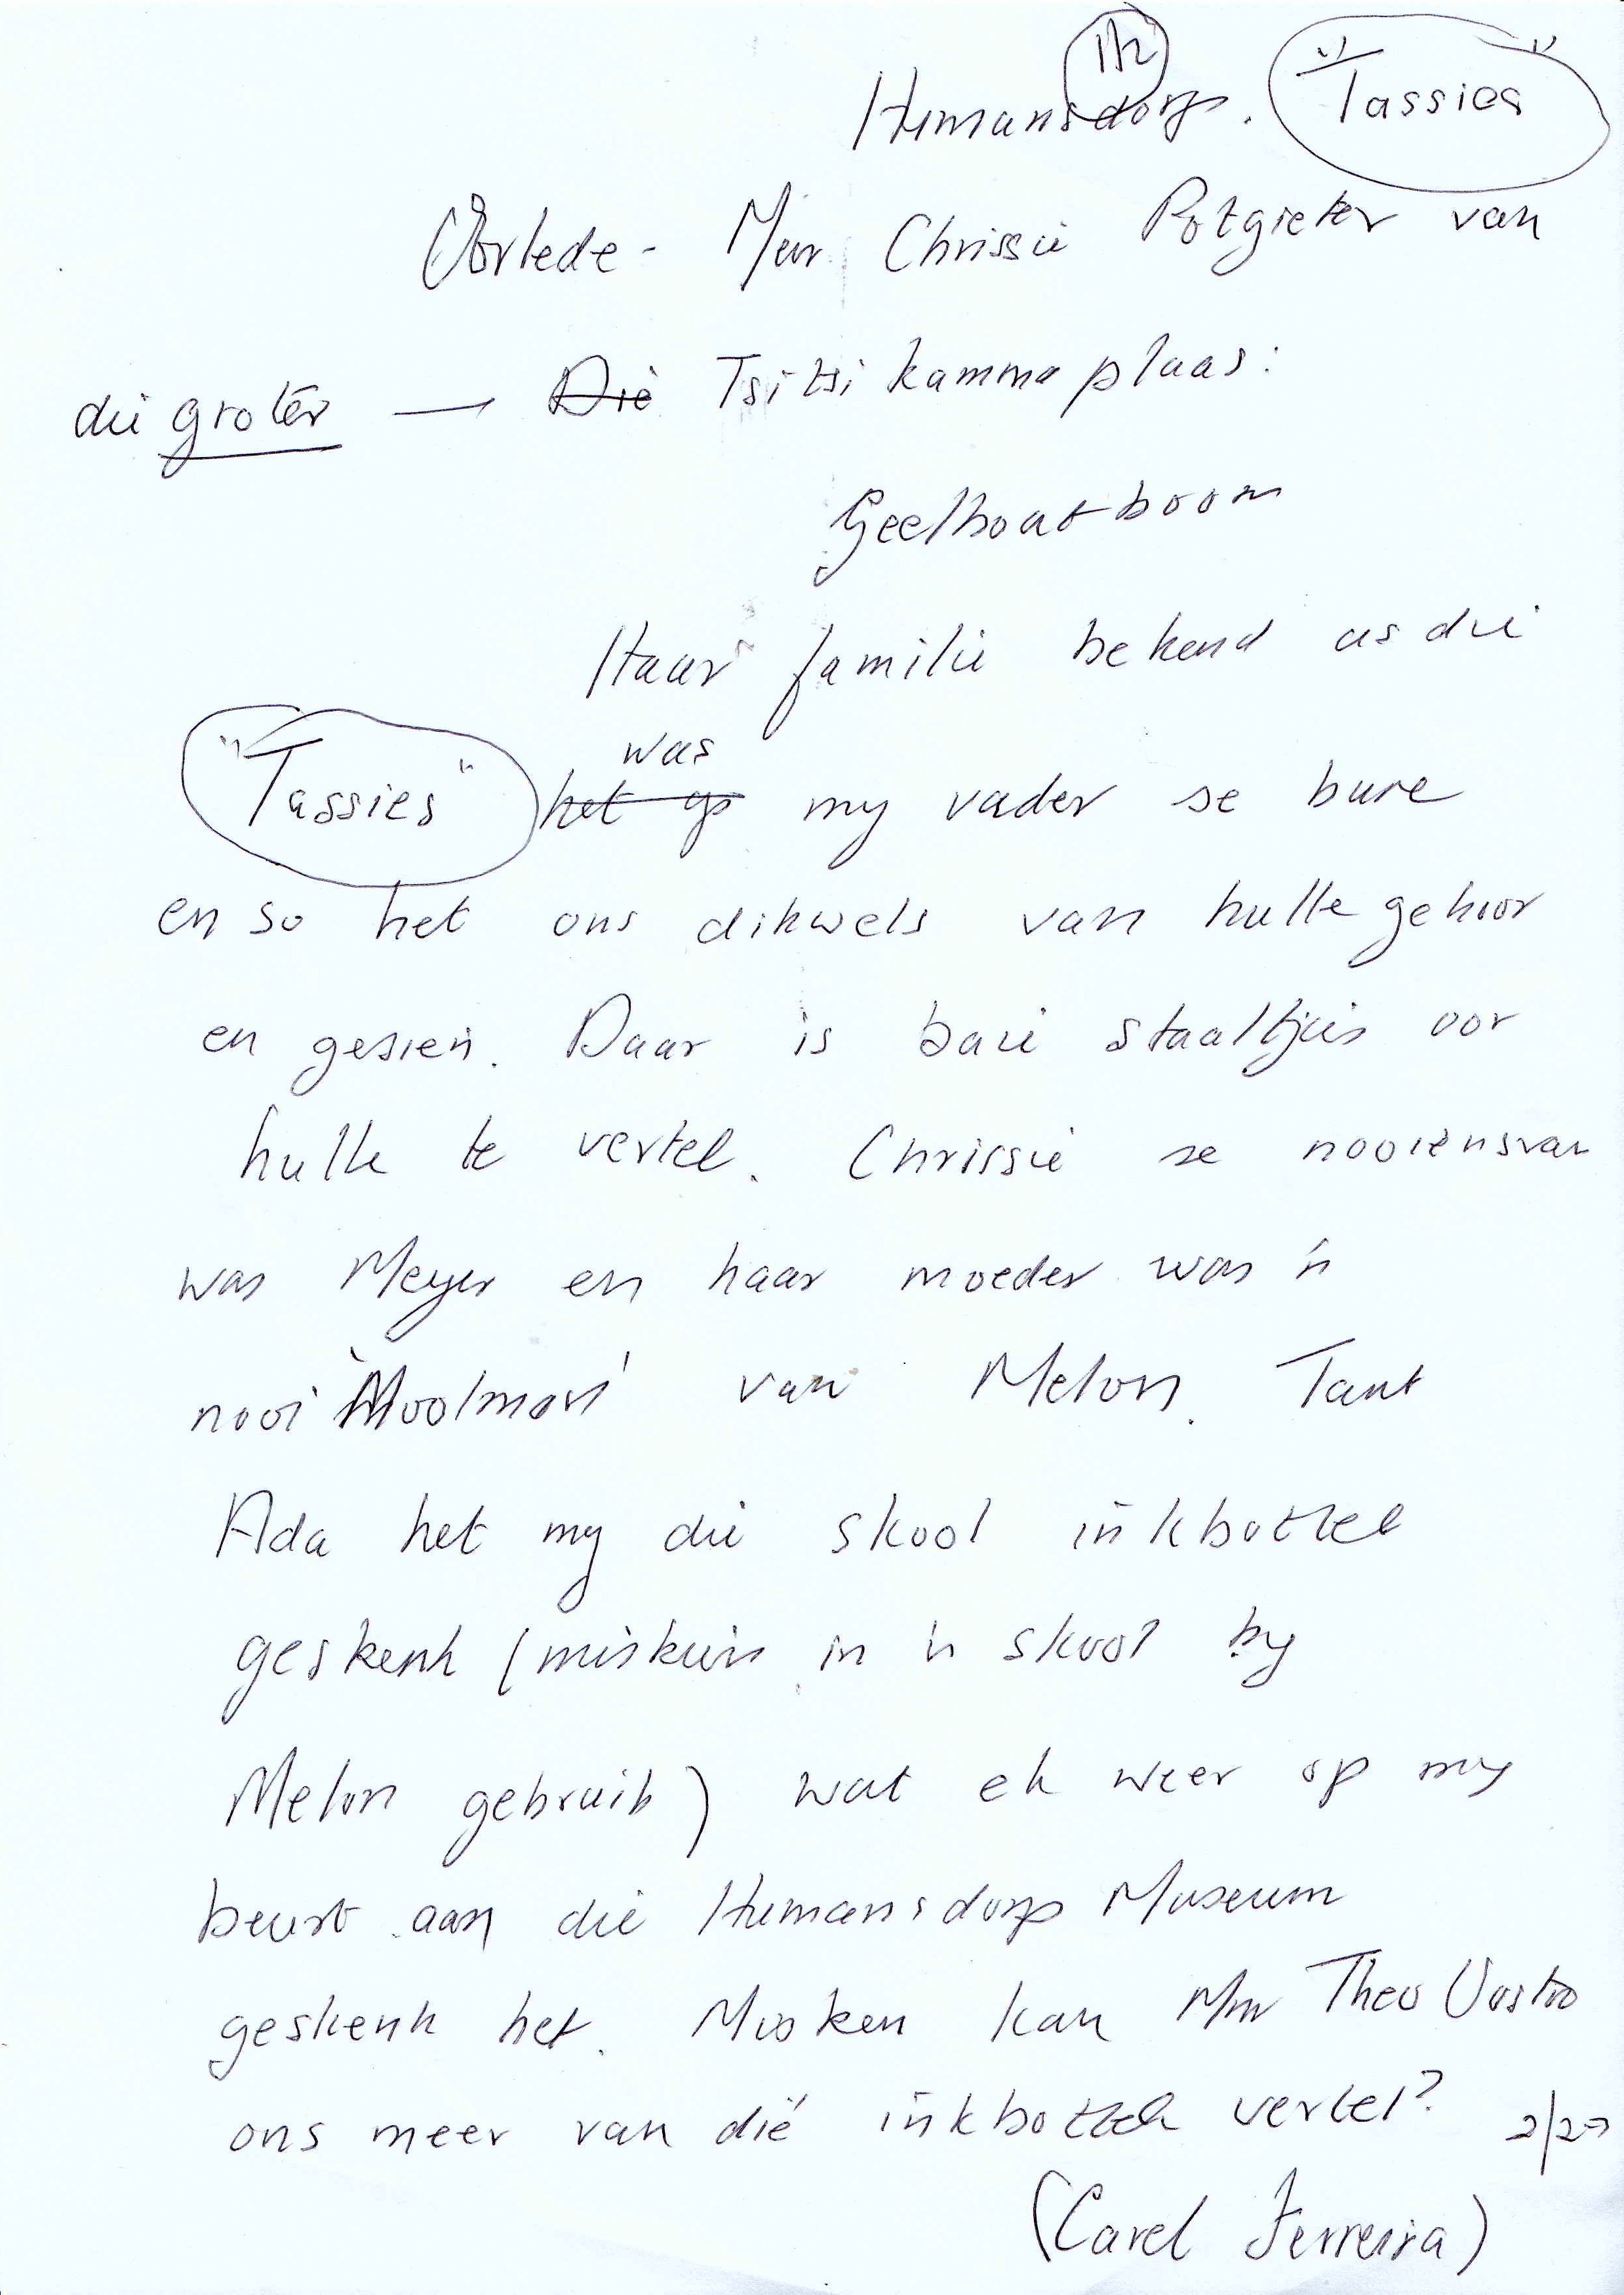 1/2
Humansdorp. "Tassies"
Oorlede - Mev. Chrissie Potgieter van
die groter — Die Tsitsikamma plaas:
Geelhoutboom
Haar familie bekend as die
was
"Tassies" het op my vader se bure
en so het ons dikwels van hulle gehoor
en gesien. Daar is baie staaltjies oor
hulle te vertel. Chrissie se nooiensvan
was Meyer en haar moeder was 'n
nooi 'Moolman' van Melon. Tant
Ada het my die skool inkbottel
geskenk (miskien in 'n skool by
Melon gebruik) wat ek weer op my
beurt aan die Humansdorp Museum
geskenk het. Misken kan Mnr Theo Vosloo
ons meer van dié inkbottel vertel?
(Carel Ferreira)